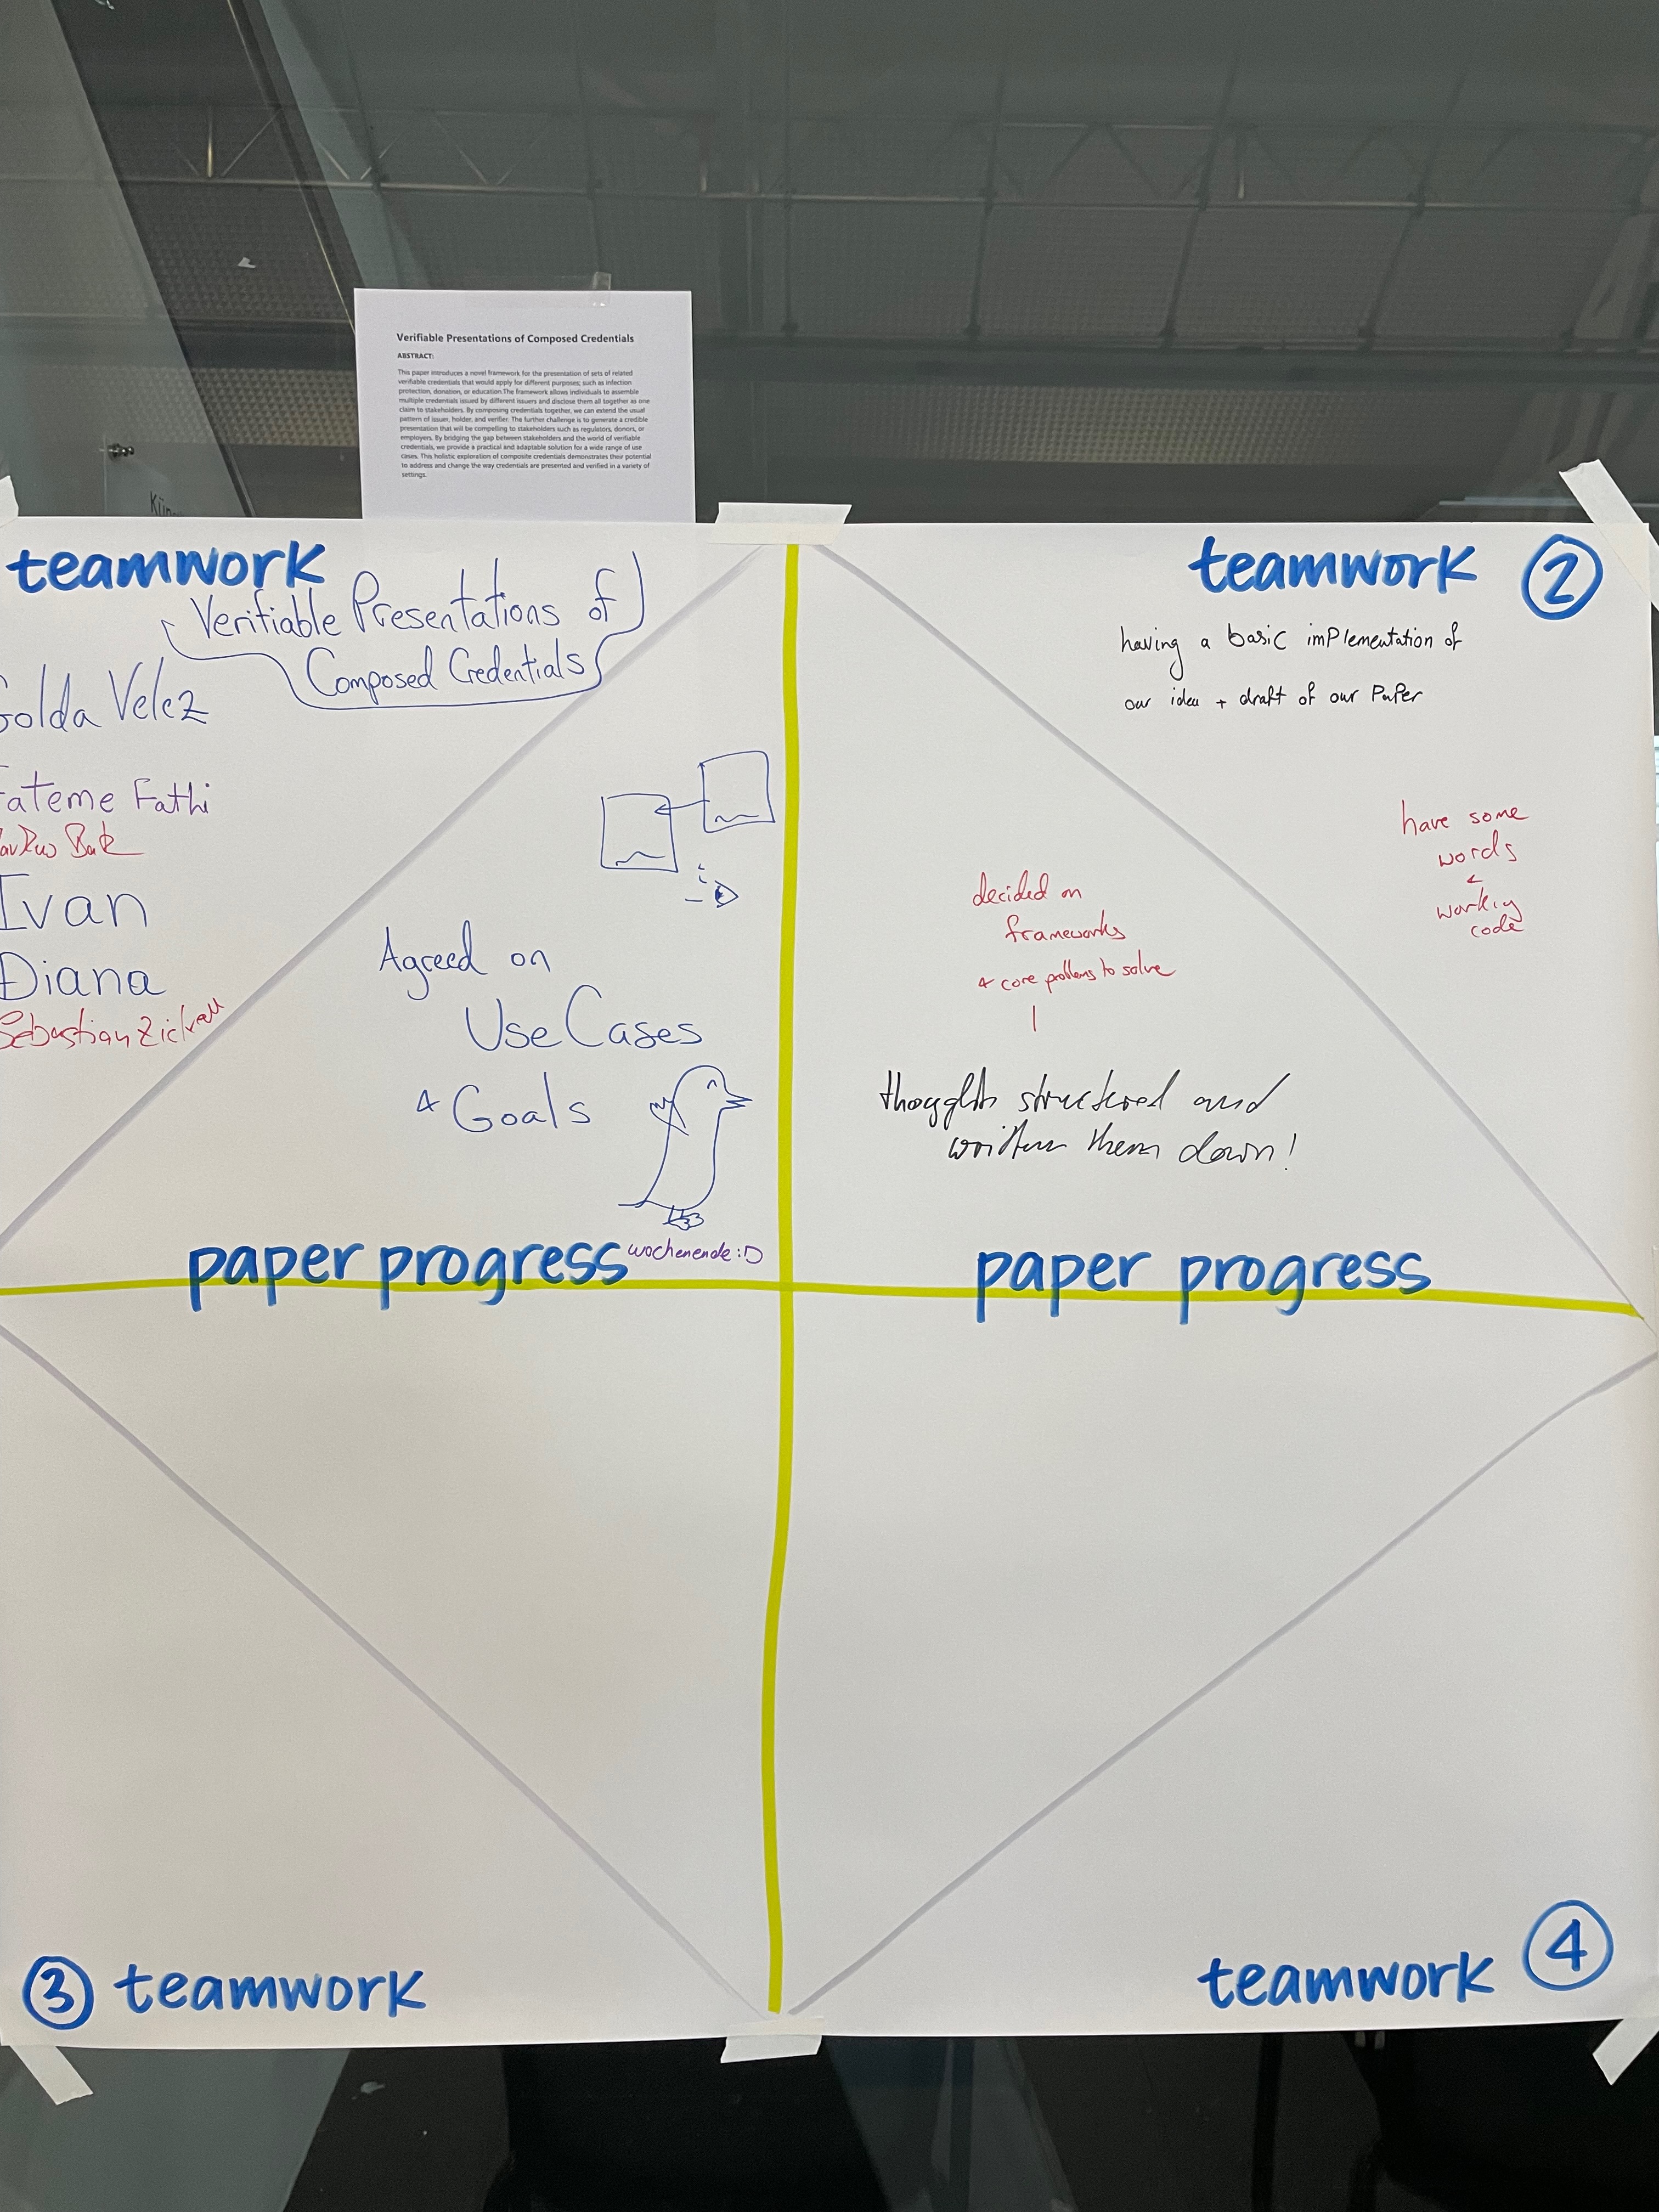 Verifiable Presentations of Composed Credentials
ABSTRACT:
This paper introduces a novel framework for the presentation of sets of related
verifiable credentials that would apply for different purposes; such as infection
protection, donation, or education.The framework allows individuals to assemble
multiple credentials issued by different issuers and disclose them all together as one
claim to stakeholders. By composing credentials together, we can extend the usual
pattern of issuer, holder, and verifier. The further challenge is to generate a credible
presentation that will be compelling to stakeholders such as regulators, donors, or
employers. By bridging the gap between stakeholders and the world of verifiable
credentials, we provide a practical and adaptable solution for a wide range of use
cases. This holistic exploration of composite credentials demonstrates their potential
to address and change the way credentials are presented and verified in a variety of
settings.
teamwork
Verifiable Presentations of
Composed Credentials
Golda Velez
Fateme Fathi
Ivan
Diana
Sebastian
Agreed on
Use Cases
& Goals
paper progress
wochenende :D
teamwork 2
having a basic implementation of
our idea + draft of our Paper
have some
words
&
working
code
decided on
frameworks
& core problems to solve
thoughts structured and
written them down!
paper progress
3 teamwork
teamwork 4